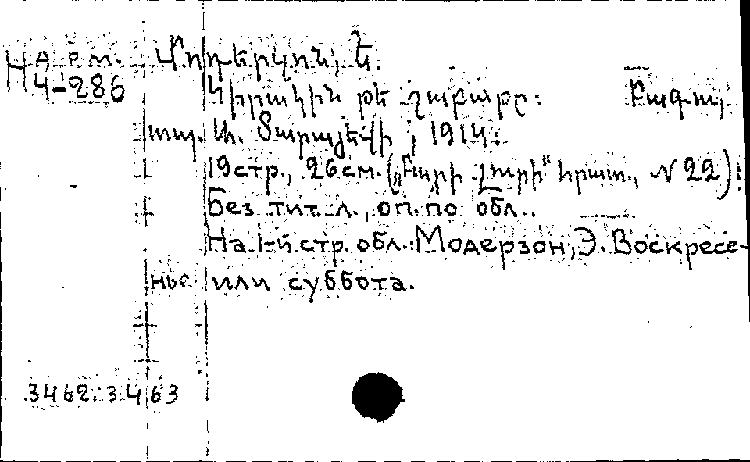 Арм.
Н 4-286
Մոդերզոն, Է.
Կիրակին թե շաբաթը: Բագու,
տպ. Ա. Ծարայեվի, 1914:
19стр., 26см. („Բարի լուրի" հրատ., N 22):
Без тит. л., оп. по обл.
На 1-й стр. обл.: Модерзон, Э. Воскресе-
нье или суббота.
3462:3463